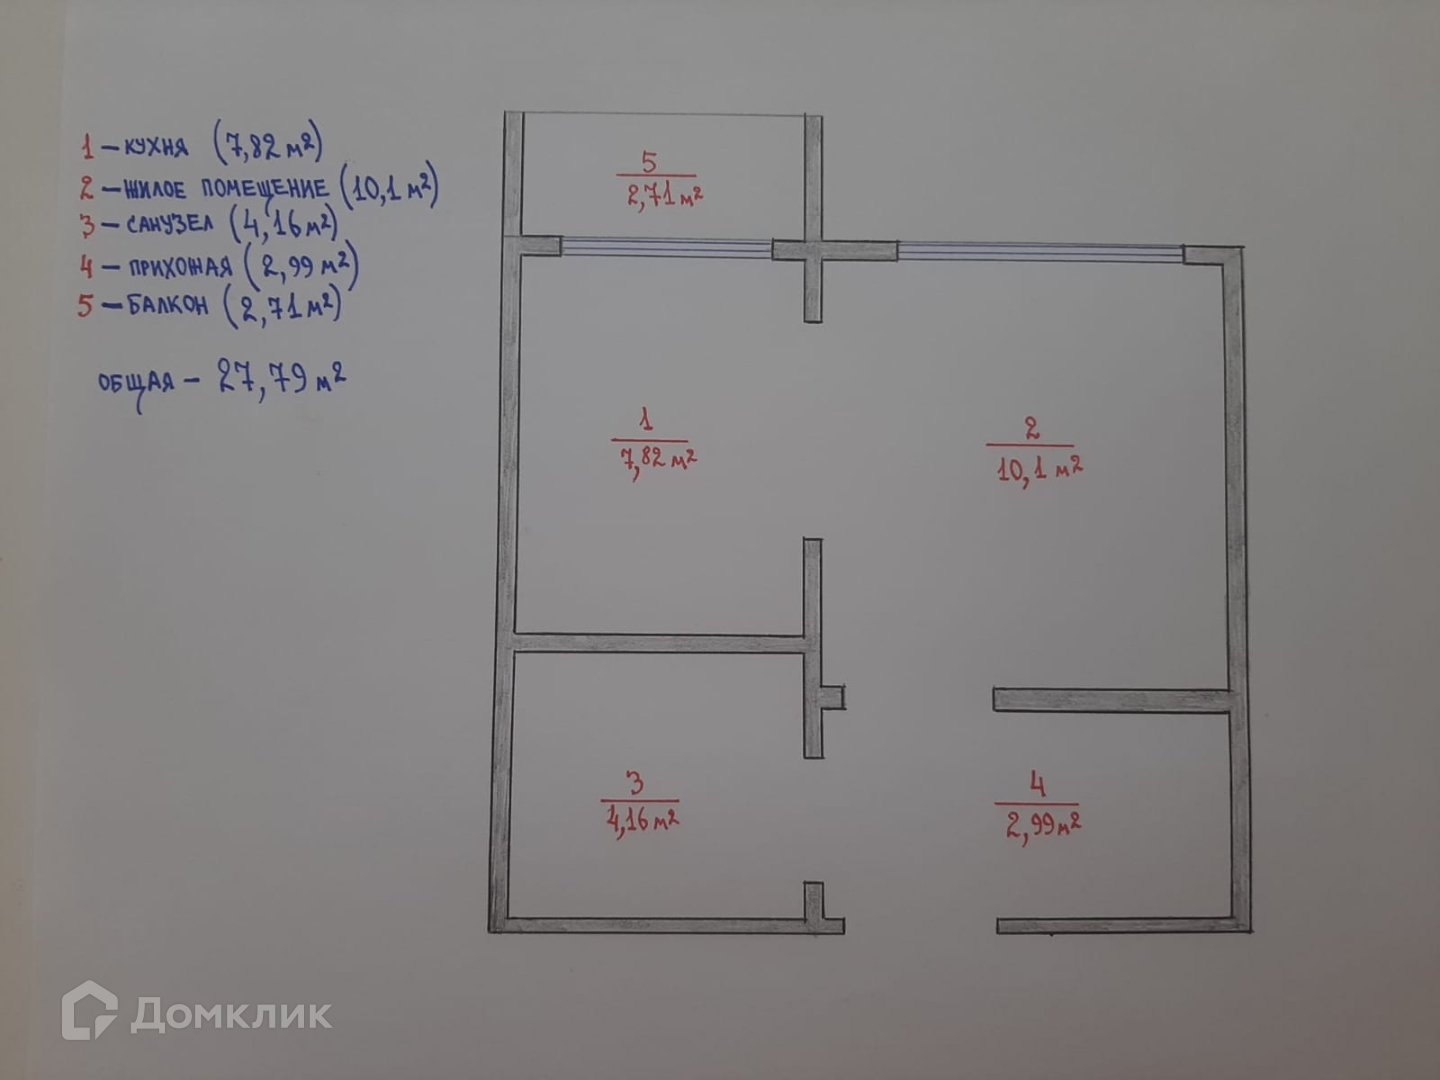 1 – КУХНЯ (7,82 м²)
2 – ЖИЛОЕ ПОМЕЩЕНИЕ (10,1 м²)
3 – САНУЗЕЛ (4,16 м²)
4 – ПРИХОЖАЯ (2,99 м²)
5 – БАЛКОН (2,71 м²)
ОБЩАЯ – 27,79 м²
5
2,71 м²
1
7,82 м²
2
10,1 м²
3
4,16 м²
4
2,99 м²
Домклик